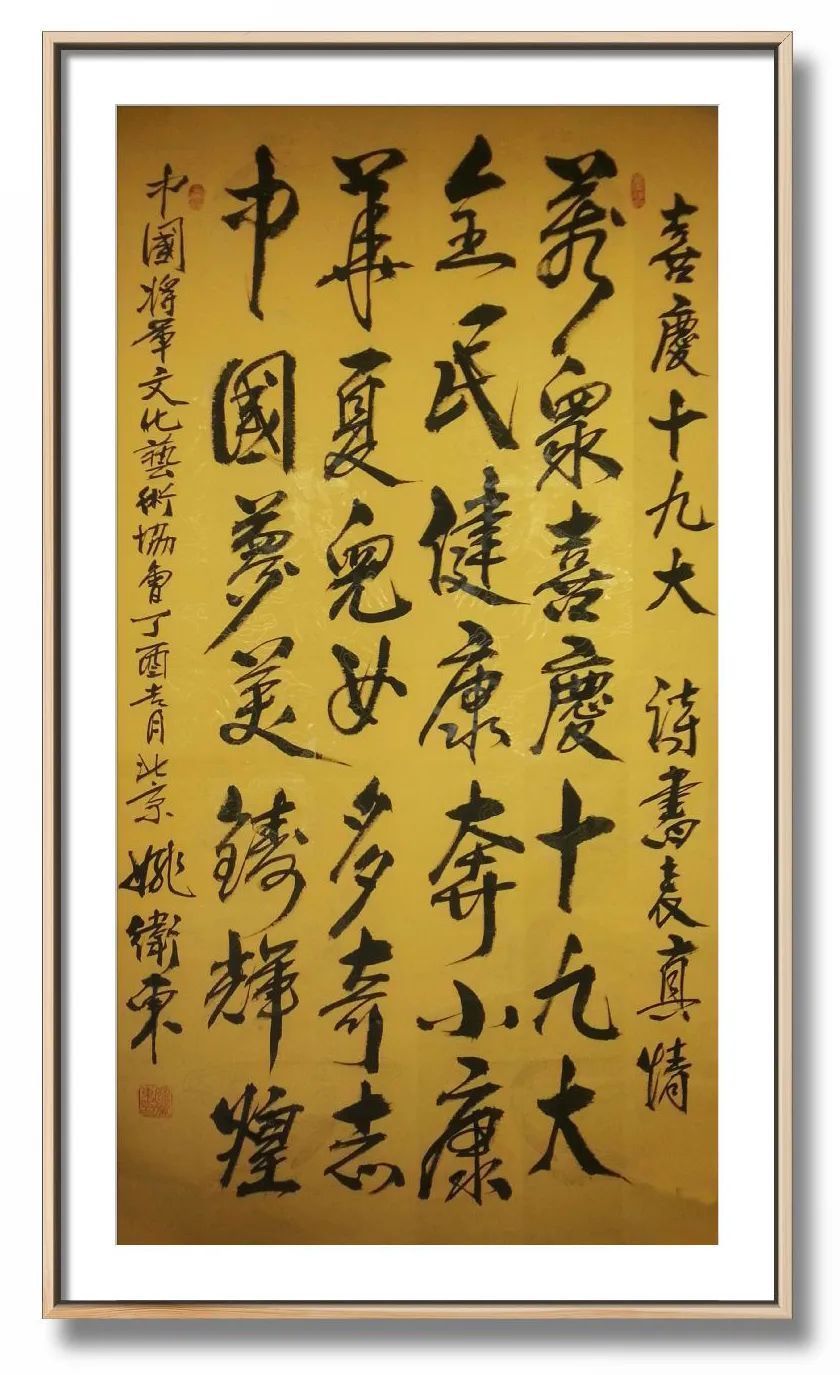 喜慶十九大 詩書表真情
萬衆喜慶十九大
全民健康奔小康
華夏兒女多奇志
中國夢美鑄輝煌
中國將軍文化藝術協會丁酉吉月北京 姚衛東